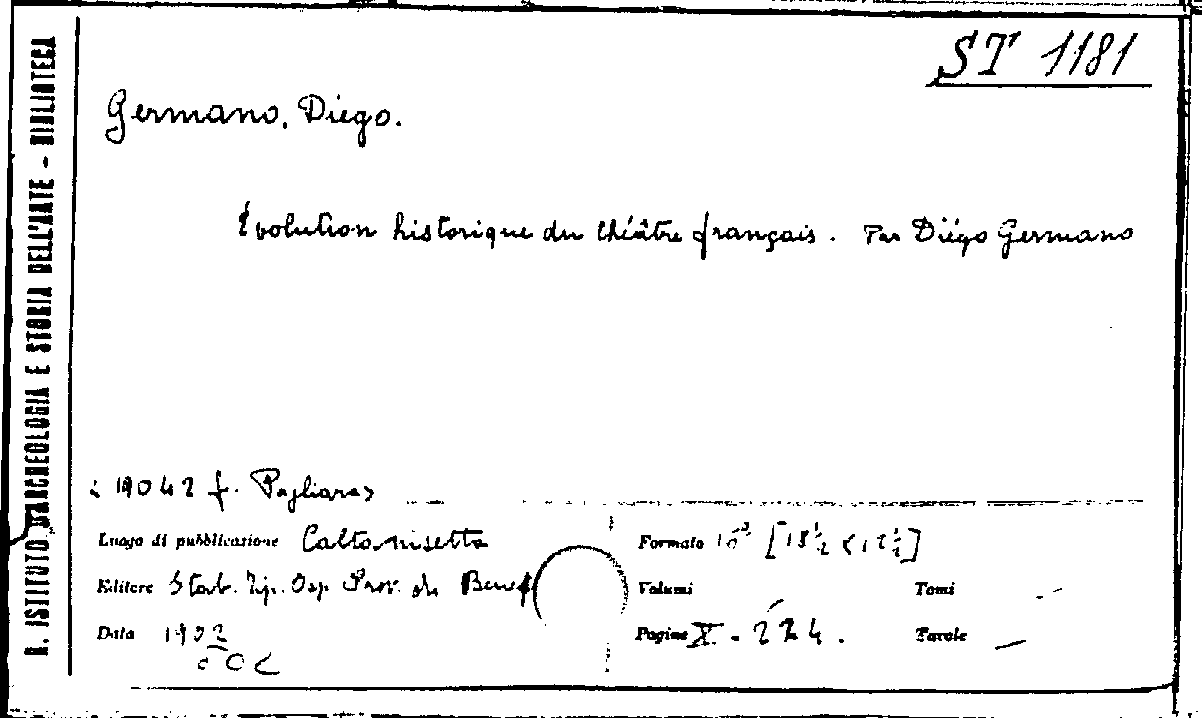 R. ISTITUTO D'ARCHEOLOGIA E STORIA DELL'ARTE - BIBLIOTECA
ST 1181
Germano, Diego.
Évolution historique du théâtre français. Par Diégo Germano
19042 f. Pagliara
Luogo di pubblicazione Caltanisetta
Editore Stab. Tip. Osp. Prov. di Benef
Data 1902
Formato 16° [18½ × 12½]
Volumi
Tomi -
Pagine X - 224.
Tavole —